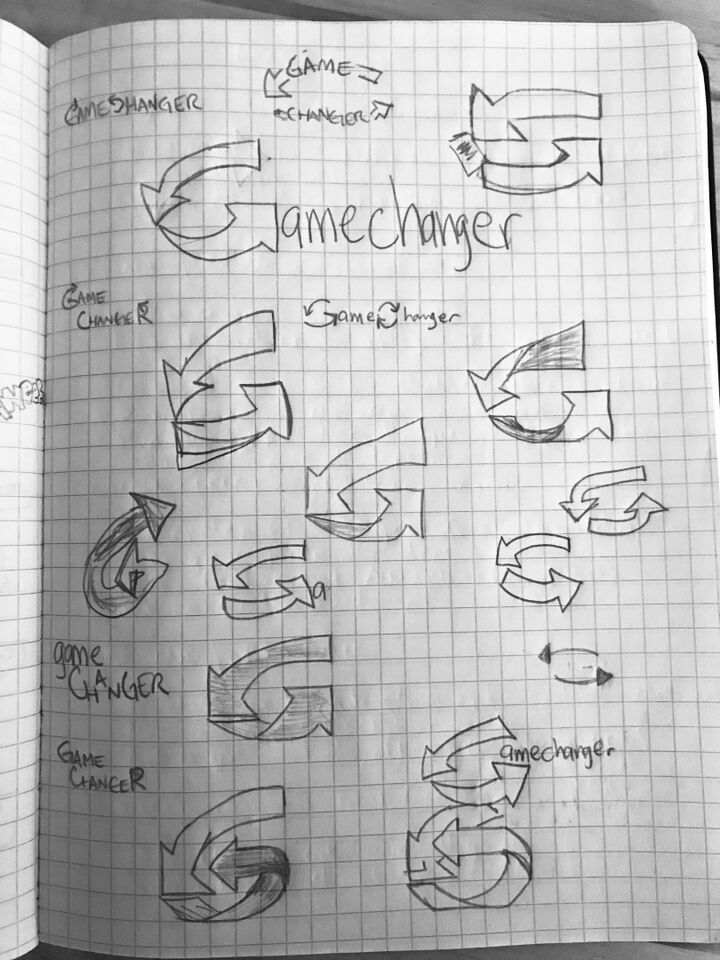 GAME
GAMESHANGER
CHANGER
Gamechanger
GAME
CHANGER
GameChanger
a
game
CHANGER
GAME
CHANGER
Gamechanger